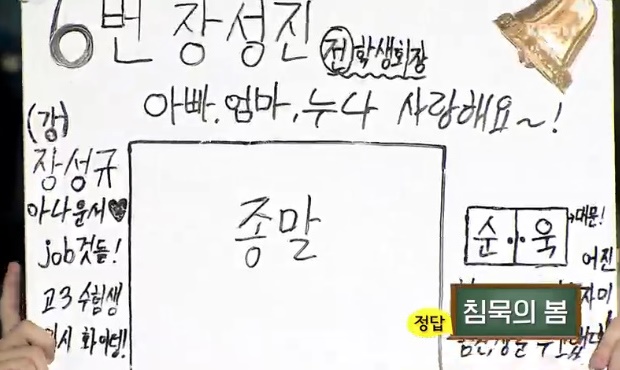 6번 장성진 전학생회장
아빠, 엄마, 누나 사랑해요~!
(강)
장성규
아나운서♥
job것들!
고3 수험생
화이팅!
종말
순..욱
→대문!
어진
자미
정답
침묵의 봄